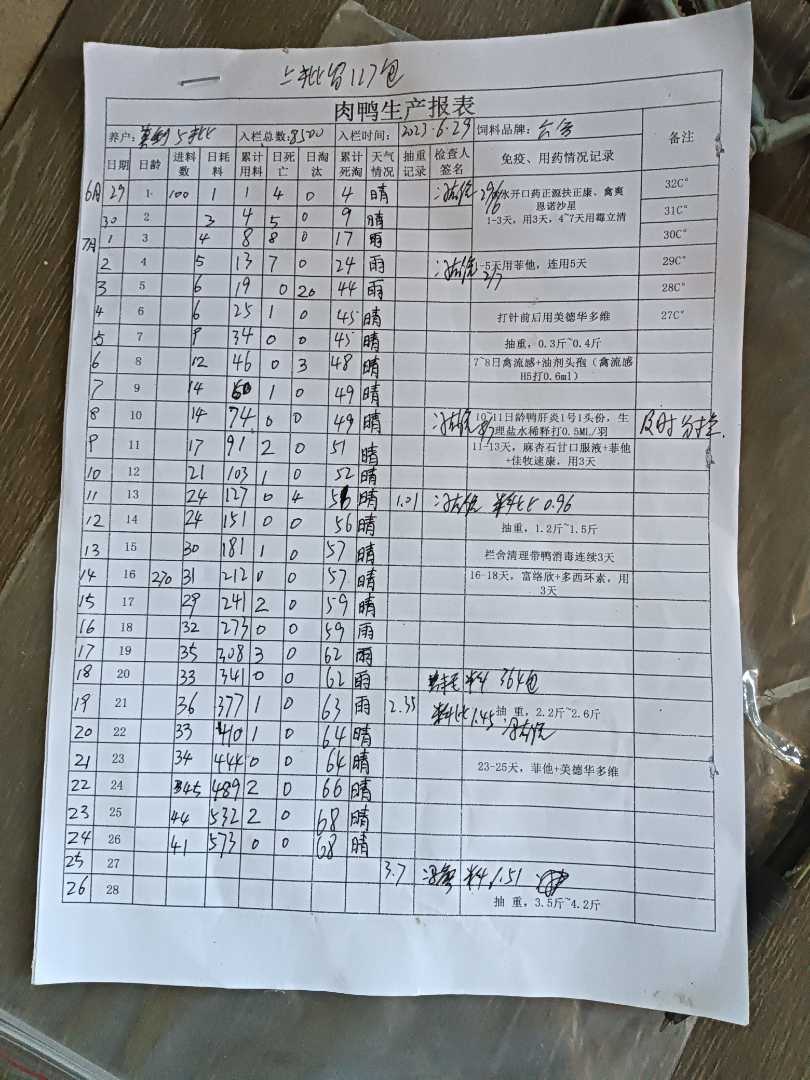 上批留117包
肉鸭生产报表
养户: 5批 入栏总数:8500 入栏时间: 2023.6.29 饲料品牌: 备注
日期 日龄 进料数 日耗料 累计用料 日死亡 日淘汰 累计死淘 天气情况 抽重记录 检查人签名 免疫、用药情况记录
6月29 1 100 1 1 4 0 4 晴 29/6 水开口药正源扶正康、禽爽 32C°
恩诺沙星
30 2 3 4 5 0 9 晴 1-3天，用3天，4~7天用霉立清 31C°
7月1 3 4 8 8 0 17 雨 30C°
2 4 5 13 7 0 24 雨 2/7 -5天用菲他，连用5天 29C°
3 5 6 19 0 20 44 雨 28C°
4 6 6 25 1 0 45 晴 打针前后用美德华多维 27C°
5 7 9 34 0 0 45 晴 抽重，0.3斤~0.4斤
6 8 12 46 0 3 48 晴 7~8日禽流感+油剂头孢（禽流感
H5打0.6ml）
7 9 14 60 1 0 49 晴
8 10 14 74 0 0 49 晴 10-11日龄鸭肝炎1号1头份，生 及时分栏
理盐水稀释打0.5ML/羽
9 11 17 91 2 0 51 晴 11-13天，麻杏石甘口服液+菲他
+佳牧速康，用3天
10 12 21 103 1 0 52 晴
11 13 24 127 0 4 56 晴 1.01 料比 0.96
12 14 24 151 0 0 56 晴 抽重，1.2斤~1.5斤
13 15 30 181 1 0 57 晴 栏舍清理带鸭消毒连续3天
14 16 270 31 212 0 0 57 晴 16-18天，富络欣+多西环素，用
3天
15 17 29 241 2 0 59 晴
16 18 32 273 0 0 59 雨
17 19 35 308 3 0 62 雨
18 20 33 341 0 0 62 雨 耗料 364包
19 21 36 377 1 0 63 雨 2.35 料比1.45 抽 重，2.2斤~2.6斤
20 22 33 410 1 0 64 晴
21 23 34 444 0 0 64 晴 23-25天，菲他+美德华多维
22 24 45 489 2 0 66 晴
23 25 44 532 2 0 68 晴
24 26 41 573 0 0 68 晴
25 27 3.7 料 1.51
26 28 抽 重，3.5斤~4.2斤